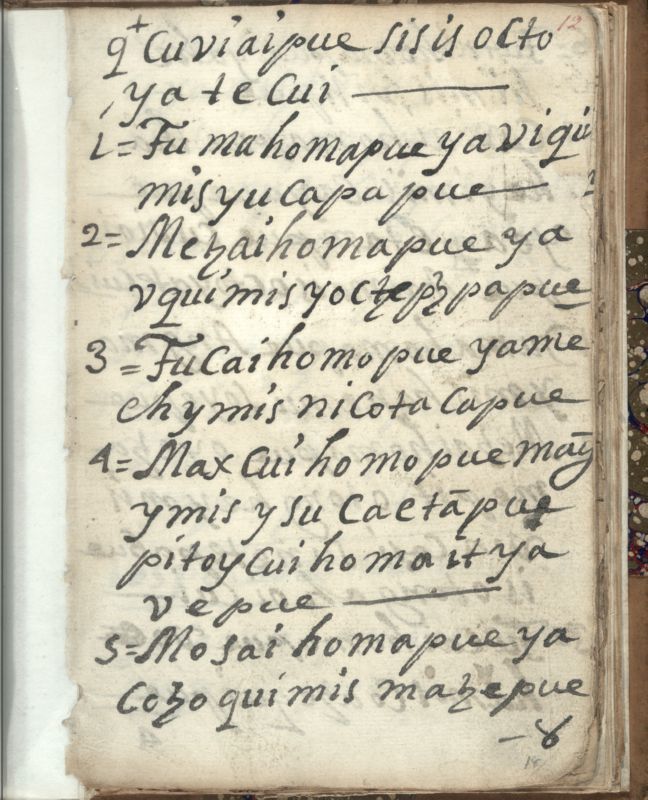 12
q+ Cuviaipue sisis octo
ya te Cui
1= Fu mahomapue ya viqui
mis yu Capapue
2= Meꜩaihomapue ya
vquimis yoctꜩe papue
3 = Fu Cai homo pue yame
chymis nicota Capue
4= Max Cui homo pue
y mis y su Caetā pue
pitoy Cui homa it ya
ve pue
5= Mosai homapue ya
Coꜩo quimis maꜩepue